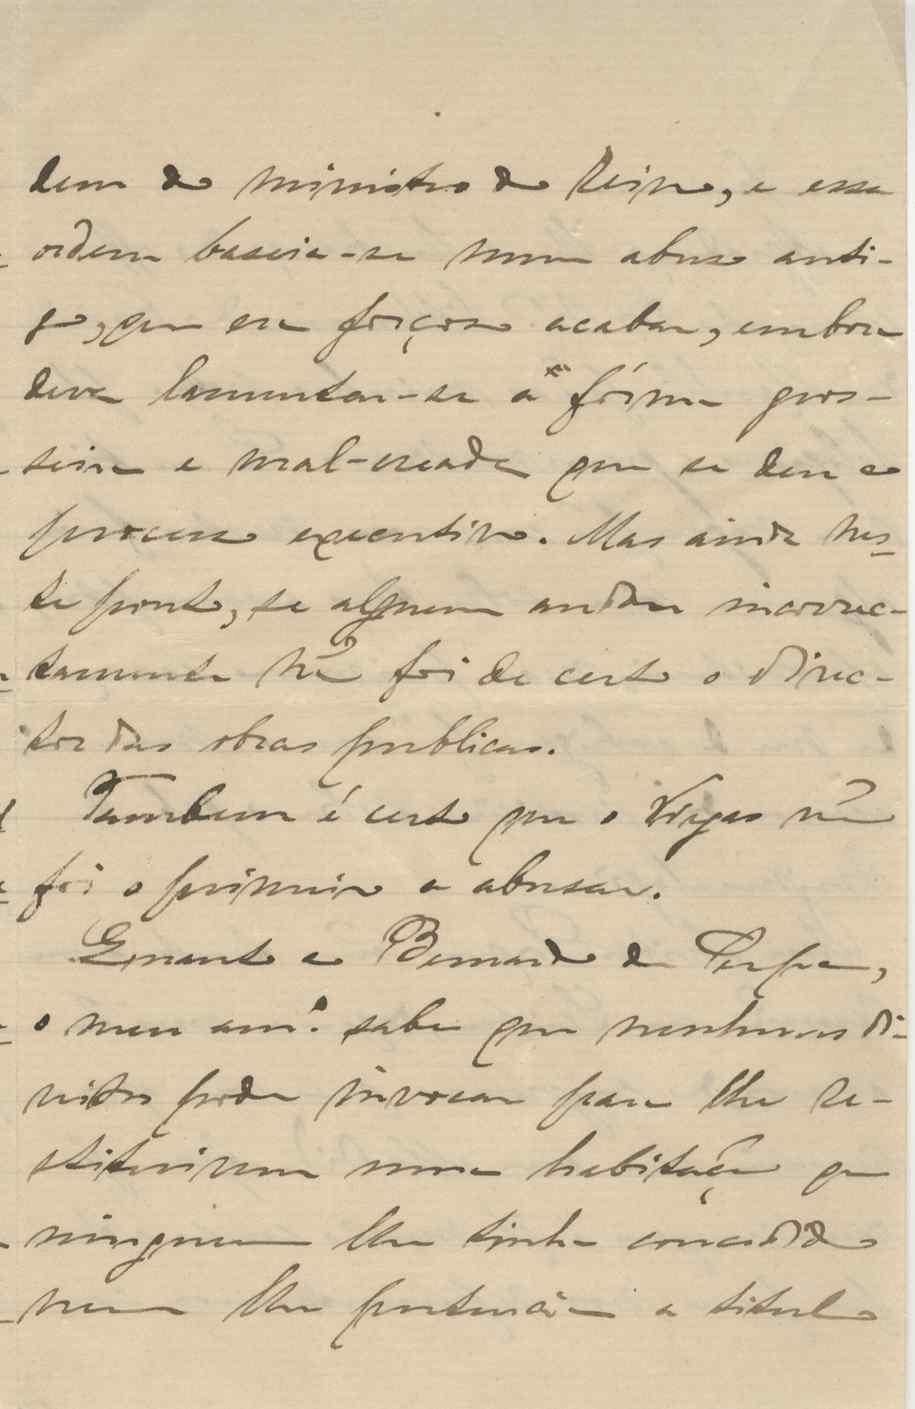 dem do ministro do Reino, e essa
ordem baseia-se num abuso anti-
go, que era forçoso acabar, embora
deva lamentar-se a fórma gros-
seira e mal-creada que se deu ao
processo executivo. Mas ainda nes-
te ponto, se alguem andou incorrec-
tamente nã foi de certo o direc-
tor das obras publicas.
Tambem é certo que o Viegas nã
foi o primeiro a abusar.
Quanto ao Bernardo de
o meu amº. sabe que nenhuns di-
reitos pode invocar para lhe re-
stituirem uma habitação que
ninguem lhe tinha concedido
nem lhe pertencia a titulo